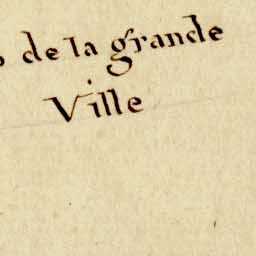 de la grande
Ville